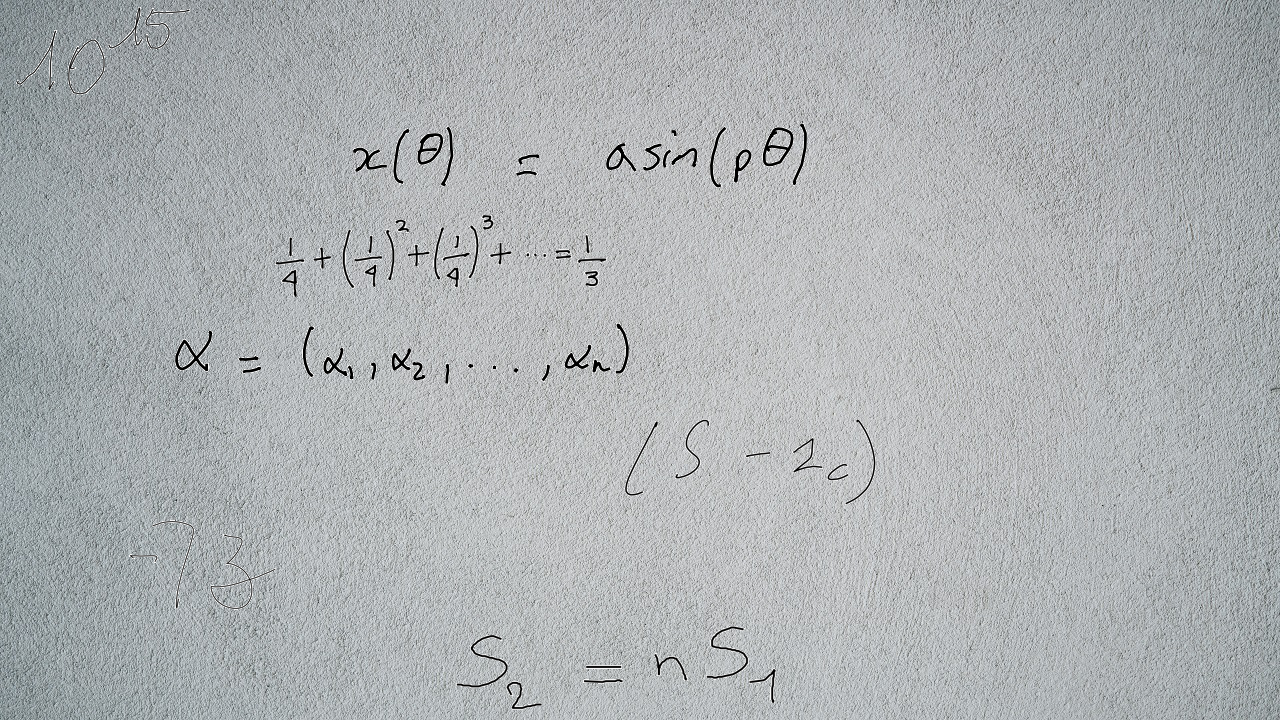 10^{15}
x(θ) = a sin(pθ)
\frac{1}{4} + \left(\frac{1}{4}\right)^2 + \left(\frac{1}{4}\right)^3 + \cdots = \frac{1}{3}
α = (α_1, α_2, ..., α_n)
(S - 1_c)
-73
S_2 = nS_1